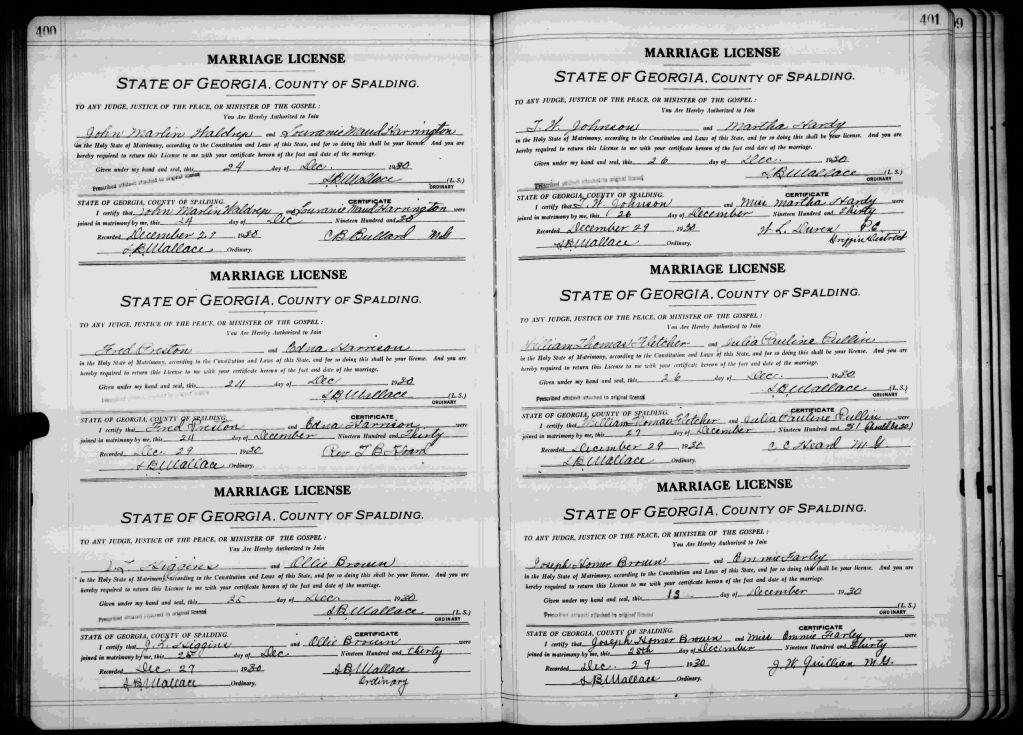 400
MARRIAGE LICENSE
STATE OF GEORGIA, COUNTY OF SPALDING.
TO ANY JUDGE, JUSTICE OF THE PEACE, OR MINISTER OF THE GOSPEL:
You Are Hereby Authorized to Join
John Marlin Waldrep and Louranie Maud Harrington
in the Holy State of Matrimony, according to the Constitution and Laws of this State, and for so doing this shall be your license. And you are
hereby required to return this License to me with your certificate hereon of the fact and date of the marriage.
Given under my hand and seal, this 24 day of Dec. 1930
Prescribed affidavit attached to original license
S.B. Wallace (L. S.)
ORDINARY
STATE OF GEORGIA, COUNTY OF SPALDING. CERTIFICATE
I certify that John Marlin Waldrep and Louranie Maud Harrington were
joined in matrimony by me, this 24 day of Dec Nineteen Hundred and 30
Recorded December 29 1930 C B Bullard M.G.
S.B. Wallace Ordinary.
MARRIAGE LICENSE
STATE OF GEORGIA, COUNTY OF SPALDING.
TO ANY JUDGE, JUSTICE OF THE PEACE, OR MINISTER OF THE GOSPEL:
You Are Hereby Authorized to Join
Fred Preston and Edna Harrison
in the Holy State of Matrimony, according to the Constitution and Laws of this State, and for so doing this shall be your license. And you are
hereby required to return this License to me with your certificate hereon of the fact and date of the marriage.
Given under my hand and seal, this 24 day of Dec 1930
Prescribed affidavit attached to original license
S.B. Wallace (L. S.)
ORDINARY
STATE OF GEORGIA, COUNTY OF SPALDING. CERTIFICATE
I certify that Fred Preston and Edna Harrison were
joined in matrimony by me, this 24 day of December Nineteen Hundred and Thirty
Recorded Dec. 29 1930 Rev. T B Heard
S.B. Wallace Ordinary.
MARRIAGE LICENSE
STATE OF GEORGIA, COUNTY OF SPALDING.
TO ANY JUDGE, JUSTICE OF THE PEACE, OR MINISTER OF THE GOSPEL:
You Are Hereby Authorized to Join
Higgins and Ollie Brown
in the Holy State of Matrimony, according to the Constitution and Laws of this State, and for so doing this shall be your license. And you are
hereby required to return this License to me with your certificate hereon of the fact and date of the marriage.
Given under my hand and seal, this 25 day of Dec. 1930
Prescribed affidavit attached to original license
S.B. Wallace (L. S.)
ORDINARY
STATE OF GEORGIA, COUNTY OF SPALDING. CERTIFICATE
I certify that J. L. Higgins and Ollie Brown were
joined in matrimony by me, this 25 day of Dec. Nineteen Hundred and thirty
Recorded Dec 27 1930 S.B. Wallace
S.B. Wallace Ordinary. Ordinary
401
99
MARRIAGE LICENSE
STATE OF GEORGIA, COUNTY OF SPALDING.
TO ANY JUDGE, JUSTICE OF THE PEACE, OR MINISTER OF THE GOSPEL:
You Are Hereby Authorized to Join
T. W. Johnson and Martha Hardy
in the Holy State of Matrimony, according to the Constitution and Laws of this State, and for so doing this shall be your license. And you are
hereby required to return this License to me with your certificate hereon of the fact and date of the marriage.
Given under my hand and seal, this 26 day of Dec. 1930
Prescribed affidavit attached to original license
S.B. Wallace (L. S.)
ORDINARY
STATE OF GEORGIA, COUNTY OF SPALDING. CERTIFICATE
I certify that T. W. Johnson and Miss Martha Hardy were
joined in matrimony by me, this 26 day of December Nineteen Hundred and Thirty
Recorded December 29 1930 W L Duren
S.B. Wallace Ordinary. Griffin District
MARRIAGE LICENSE
STATE OF GEORGIA, COUNTY OF SPALDING.
TO ANY JUDGE, JUSTICE OF THE PEACE, OR MINISTER OF THE GOSPEL:
You Are Hereby Authorized to Join
William Thomas Fletcher and Julia Pauline Pullin
in the Holy State of Matrimony, according to the Constitution and Laws of this State, and for so doing this shall be your license. And you are
hereby required to return this License to me with your certificate hereon of the fact and date of the marriage.
Given under my hand and seal, this 26 day of Dec. 1930
Prescribed affidavit attached to original license
S.B. Wallace (L. S.)
ORDINARY
STATE OF GEORGIA, COUNTY OF SPALDING. CERTIFICATE
I certify that William Thomas Fletcher and Julia Pauline Pullin were
joined in matrimony by me, this 27 day of December Nineteen Hundred and 31 (should be 30)
Recorded December 29 1930 C. C Heard M.G.
S.B. Wallace Ordinary.
MARRIAGE LICENSE
STATE OF GEORGIA, COUNTY OF SPALDING.
TO ANY JUDGE, JUSTICE OF THE PEACE, OR MINISTER OF THE GOSPEL:
You Are Hereby Authorized to Join
Joseph Homer Brown and Emmie Farley
in the Holy State of Matrimony, according to the Constitution and Laws of this State, and for so doing this shall be your license. And you are
hereby required to return this License to me with your certificate hereon of the fact and date of the marriage.
Given under my hand and seal, this 13 day of December 1930
Prescribed affidavit attached to original license
S.B. Wallace (L. S.)
ORDINARY
STATE OF GEORGIA, COUNTY OF SPALDING. CERTIFICATE
I certify that Joseph Homer Brown and Miss Emmie Farley were
joined in matrimony by me, this 25th day of December Nineteen Hundred and Thirty
Recorded Dec. 29 1930 J. W. Quillian M.G.
S.B. Wallace Ordinary.